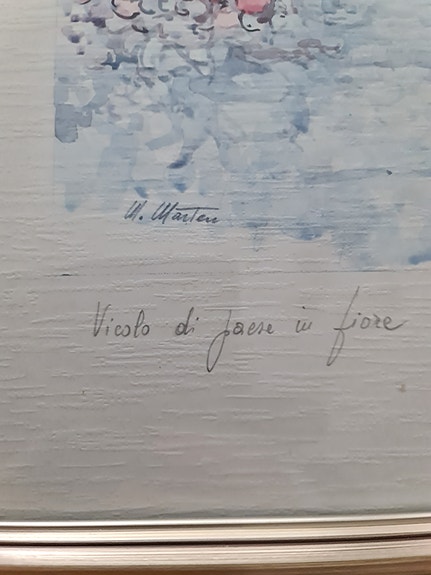 M. Marten
Vicolo di paese in fiore